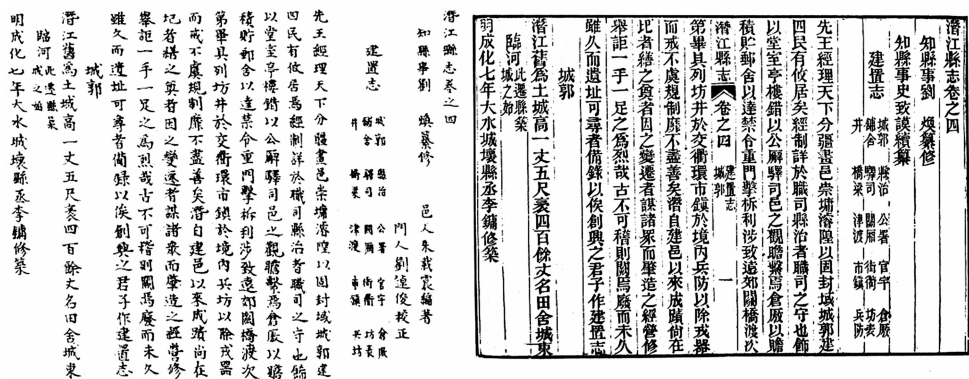 潛江縣志卷之四
知縣事劉煥纂修　邑人朱載震編著
門人劉俊校正
建置志
城郭　縣治　公署　官宇　倉廒
鋪舍　驛司　關廂　街衢　坊表
井　橋梁　津渡　市鎮　兵防
先王經理天下分疆畫邑崇墉濬隍以固封域城郭建
四民有攸居焉經制詳於職司縣治者職司之守也飾
以堂室亭樓錯以公廨驛司邑之觀瞻繫焉倉廒以贍
積貯郵舍以達禁令重門擊柝利涉致遠郊關橋渡次
第畢具列坊井於交衢環市鎮於境內兵防以除戎器
而戒不虞規制靡不盡善矣潛自建邑以來成蹟尚在
圮者繕之奐者因之變遷者謀諸衆而肇造之經營修
舉詎一手一足之為烈哉古不可稽則闕焉廢而未久
雖久而遺址可尋者備錄以俟創興之君子作建置志
城郭
潛江舊為土城高一丈五尺袤四百餘丈名田舍城東
臨河此遷縣築城之始
明成化七年大水城壞縣丞李鏞修築
潛江縣志卷之四
知縣事劉　煥纂修
知縣事史致謨續纂
建置志
城郭　縣治　公署　官宇　倉廒
鋪舍　驛司　關廂　街衢　坊表
井　橋梁　津渡　市鎮　兵防
先王經理天下分疆畫邑崇墉濬隍以固封域城郭建
四民有攸居矣經制詳於職司縣治者職司之守也飾
以堂室亭樓錯以公廨驛司邑之觀瞻繫焉倉廒以贍
積貯郵舍以達禁令重門擊柝利涉致遠郊關橋渡次
潛江縣志　卷之四　建置志　城郭　一
第畢具列坊井於交衢環市鎮於境內兵防以除戎器
而戒不虞規制靡不盡善矣潛自建邑以來成蹟尚在
圮者繕之奐者四之變遷者謀諸眾而肇造之經營修
舉詎一手一足之爲烈哉古不可稽則闕焉廢而未久
雖久而遺址可尋者備錄以俟創興之君子作建置志
城郭
潛江舊爲土城高一丈五尺袤四百餘丈名田舍城東
臨河此遷縣築城之始
明成化七年大水城壞縣丞李鏞修築